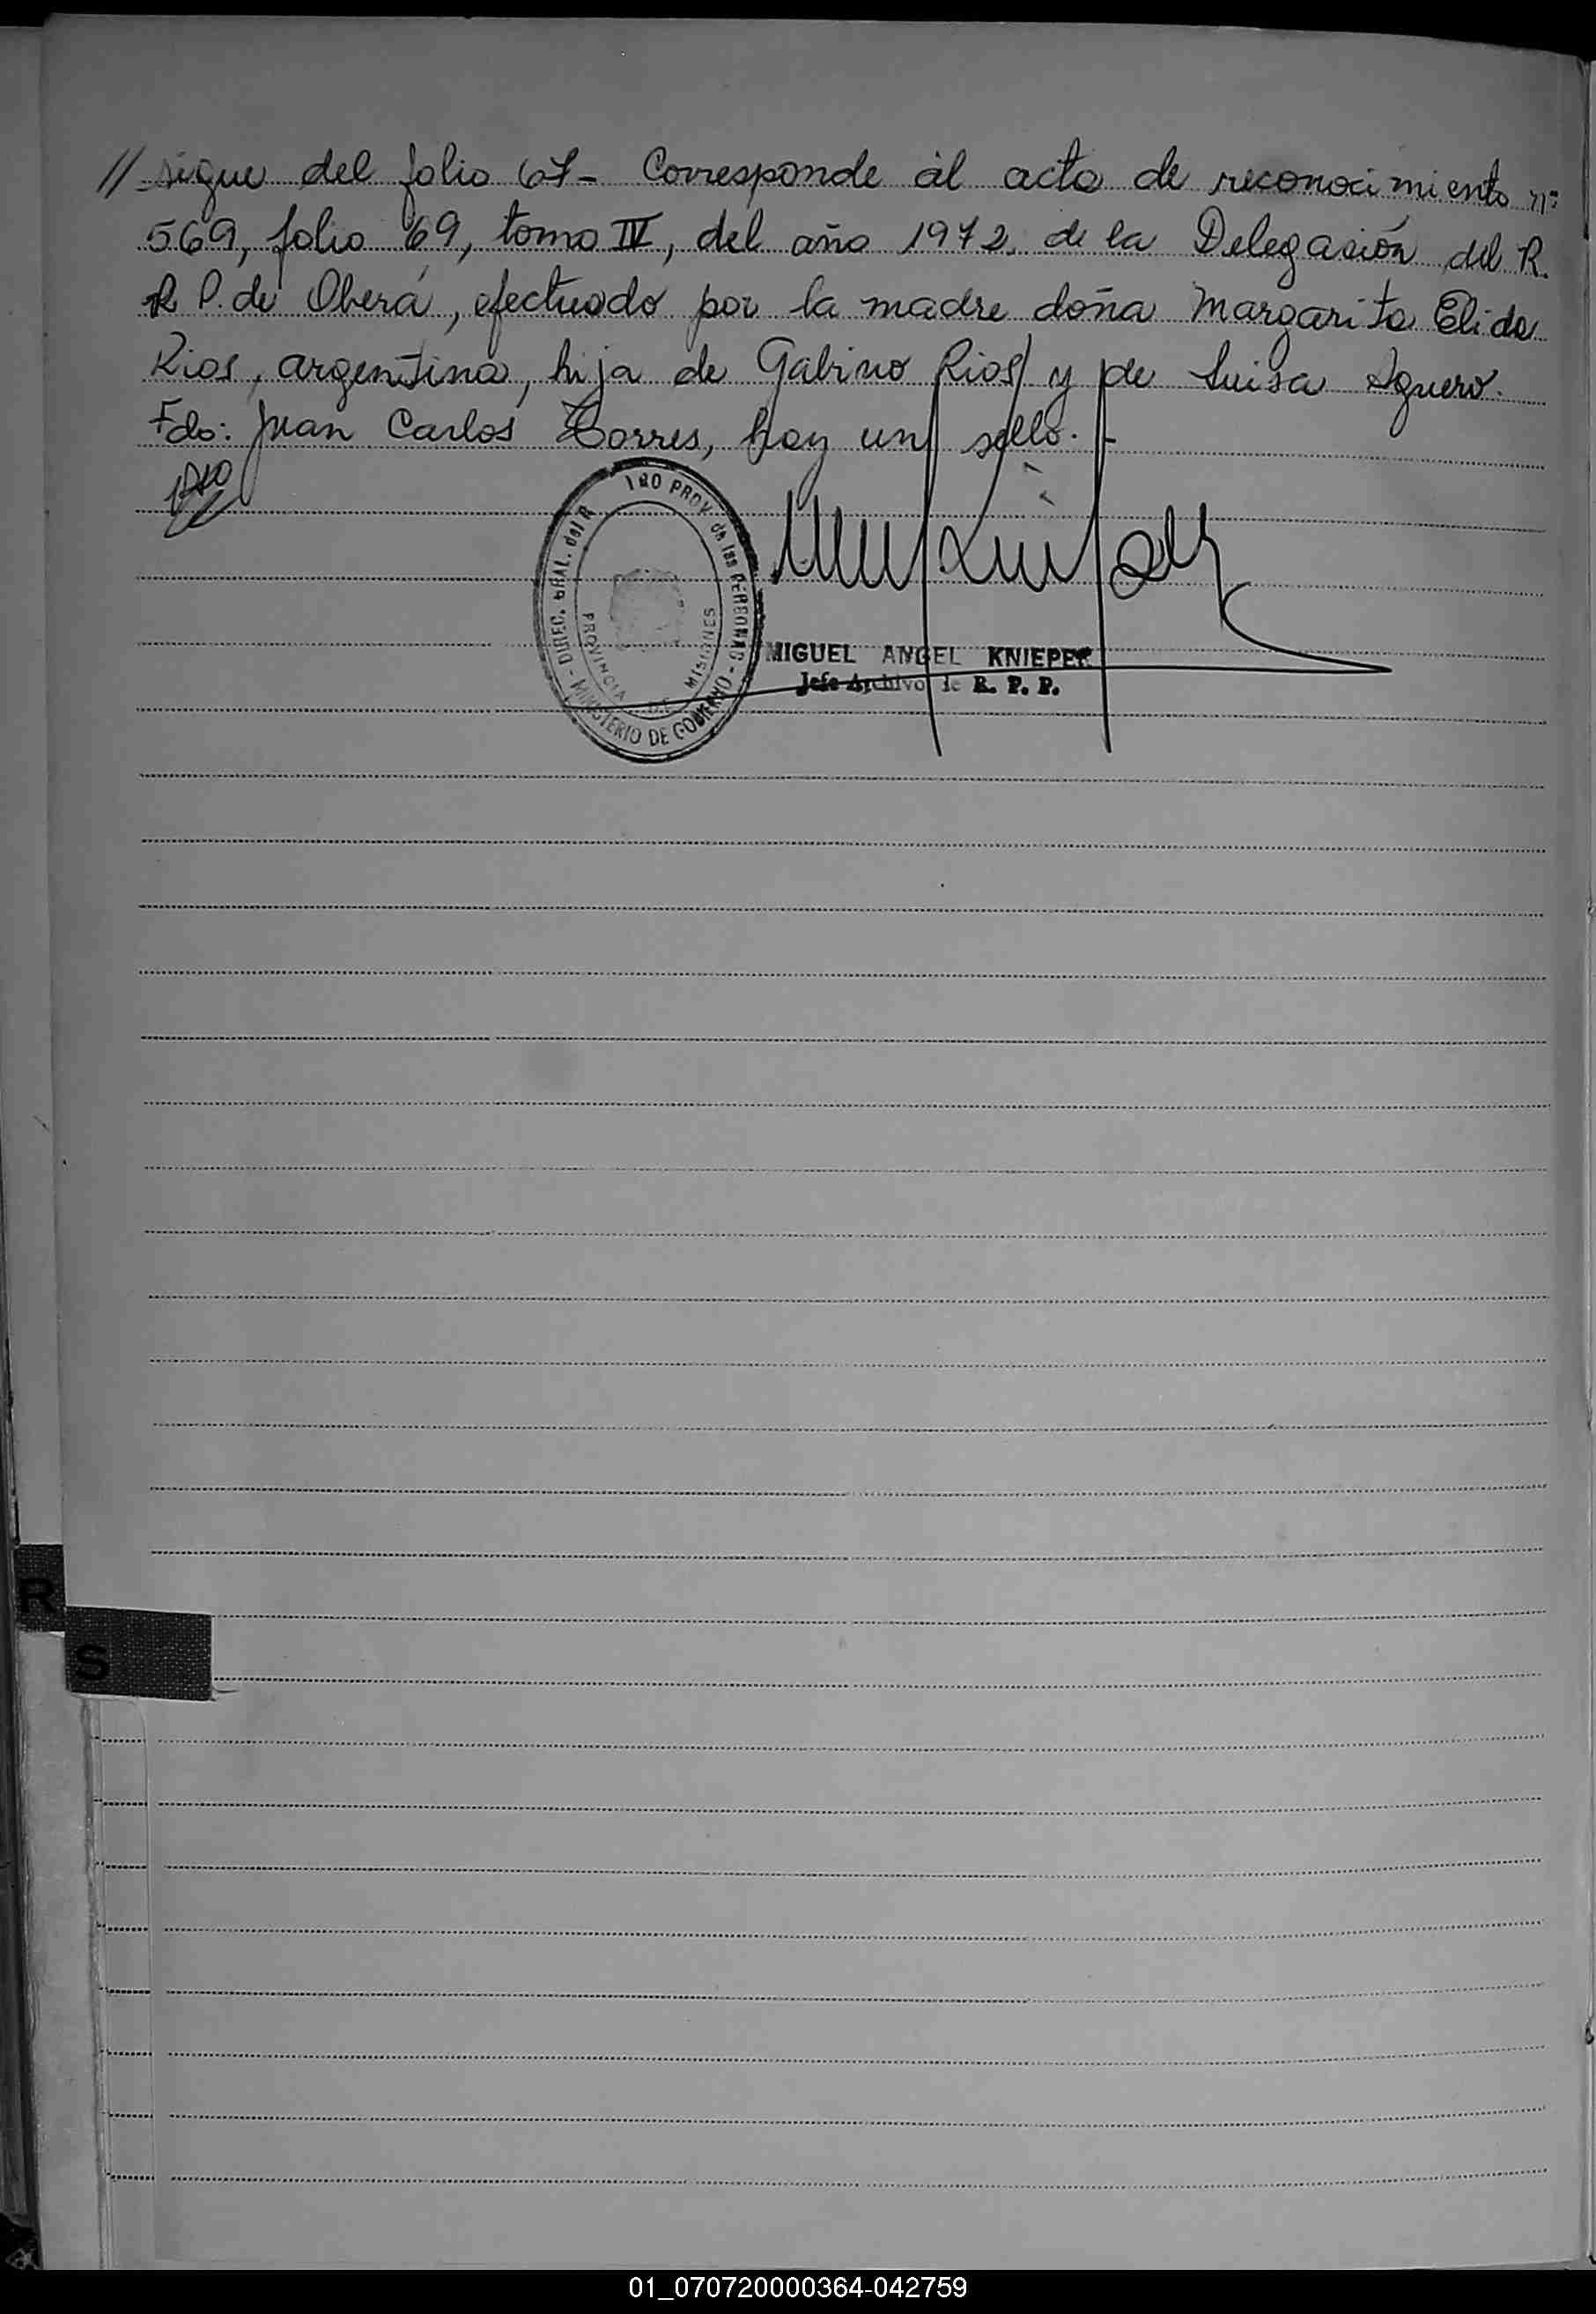 //-sigue del folio 67- Corresponde al acta de reconocimiento nº
569, folio 69, tomo IV, del año 1972. de la Delegación del R.
R P. de Oberá, efectuado por la madre doña Margarita Elida
Rios, argentina, hija de Gabino Rios y de Luisa Aguero.
Fdo: Juan Carlos Torres, hay un sello.-
DIREC. GRAL. del R PROV. de las PERSONAS - MINISTERIO DE GOBIERNO -
PROVINCIA DE MISIONES
MIGUEL ANGEL KNIEPER
Jefe Archivo de R. P. P.
R
S
01_070720000364-042759